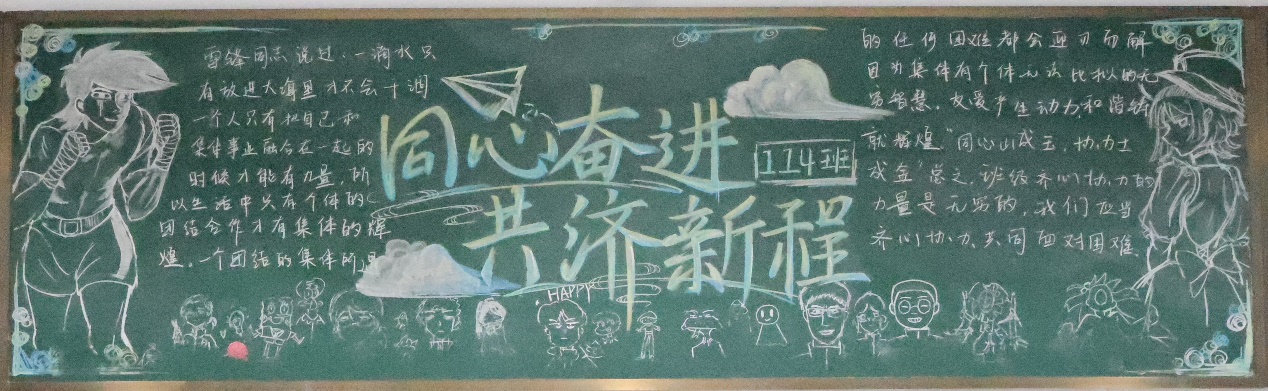 雷锋同志说过，一滴水只
有放进大海里才不会干涸
一个人只有把自己和
集体事业融合在一起的
时候才能有力量，所
以生活中只有个体的
团结合作才有集体的辉
煌。一个团结的集体所遇
同心奋进
114班
共济新程
HAPPY
的任何困难都会迎刃而解
因为集体有个体无法比拟的无
穷智慧。友爱产生动力，和谐铸
就辉煌“同心山成玉，协力土
成金’总之，班级齐心协力的
力量是无穷的，我们应当
齐心协力，共同面对困难。